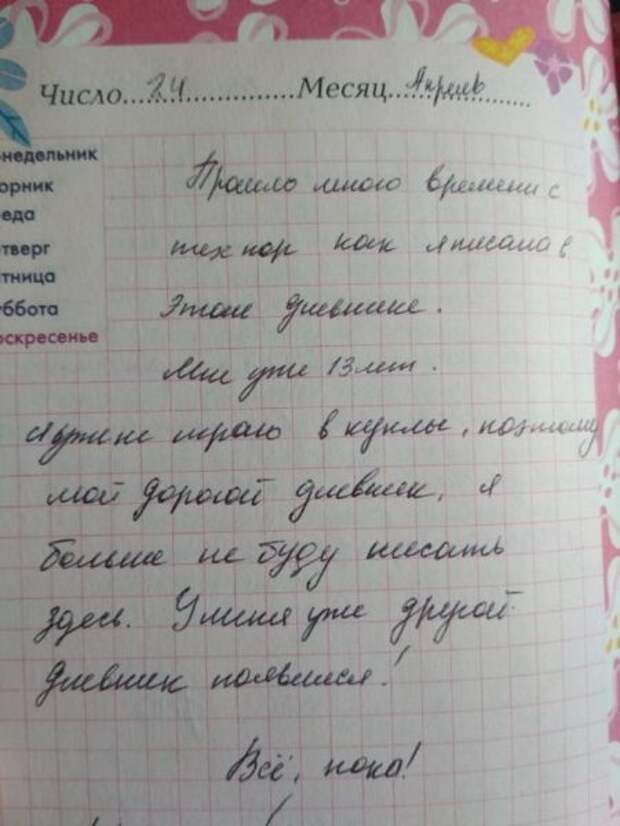 Число...24...................Месяц...Апрель......
онедельник
орник
еда
етверг
тница
уббота
оскресенье
Прошло много времени с
тех пор как я писала в
этом дневнике.
Мне уже 13 лет.
Я уже не играю в куклы, поэтому
мой дорогой дневник, я
больше не буду писать
здесь. У меня уже другой
дневник появился!
Всё, пока!